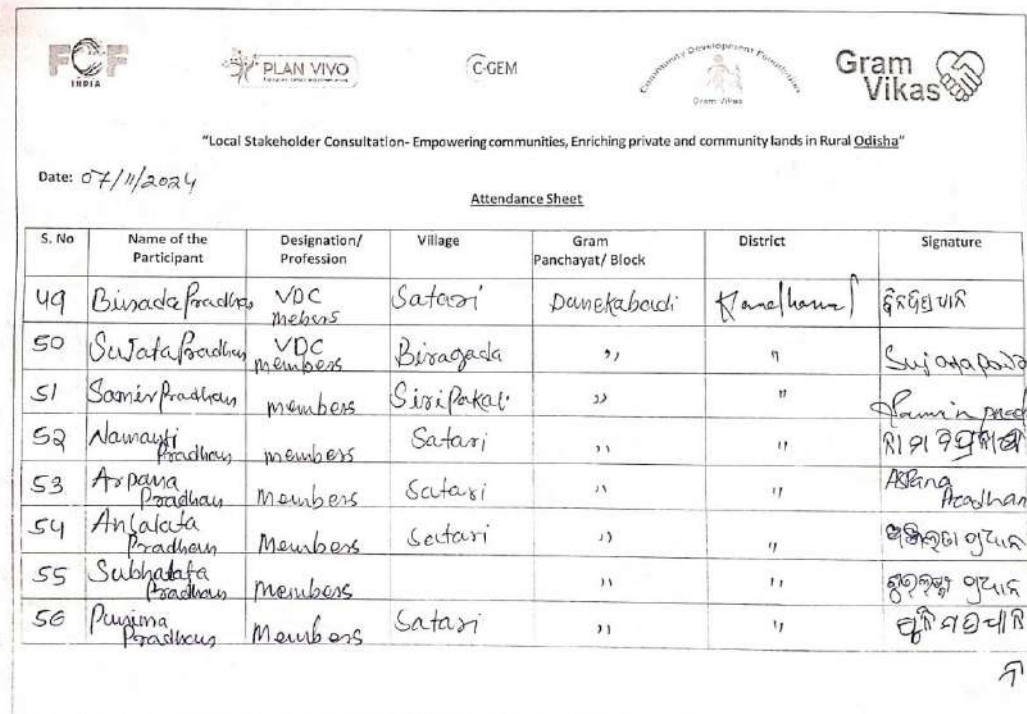 FCF
INDIA
PLAN VIVO
C-GEM
Community Development Foundation
Gram Vikas
Gram
Vikas
"Local Stakeholder Consultation- Empowering communities, Enriching private and community lands in Rural Odisha"
Date: 07/11/2024
Attendance Sheet
S. No Name of the Participant Designation/ Profession Village Gram Panchayat/ Block District Signature
49 Binada Pradhan VDC mebers Satari Danekabadi Kandhamal
50 Sujata Pradhan VDC members Biragada ,, ,, Sujata
51 Samir Pradhan members Siripakal ,, ,,
52 Namayti Pradhan members Satari ,, ,,
53 Arpana Pradhan Members Satari ,, ,, Arpana Pradhan
54 Anjalata Pradhan Members Satari ,, ,,
55 Subhalata Pradhan Members ,, ,,
56 Punima Pradhan Members Satari ,, ,,